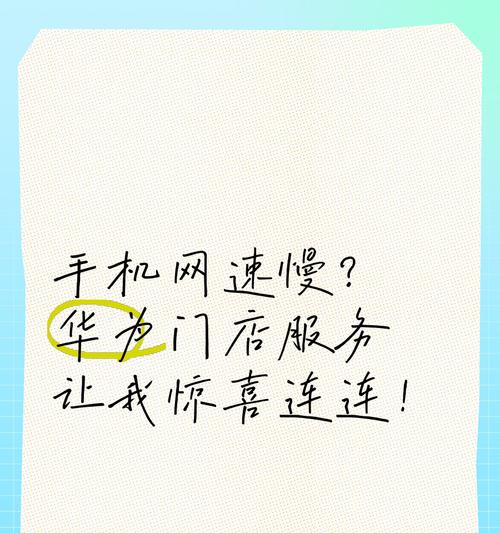 手机网速慢?
华为门店服务
让我惊喜连连!